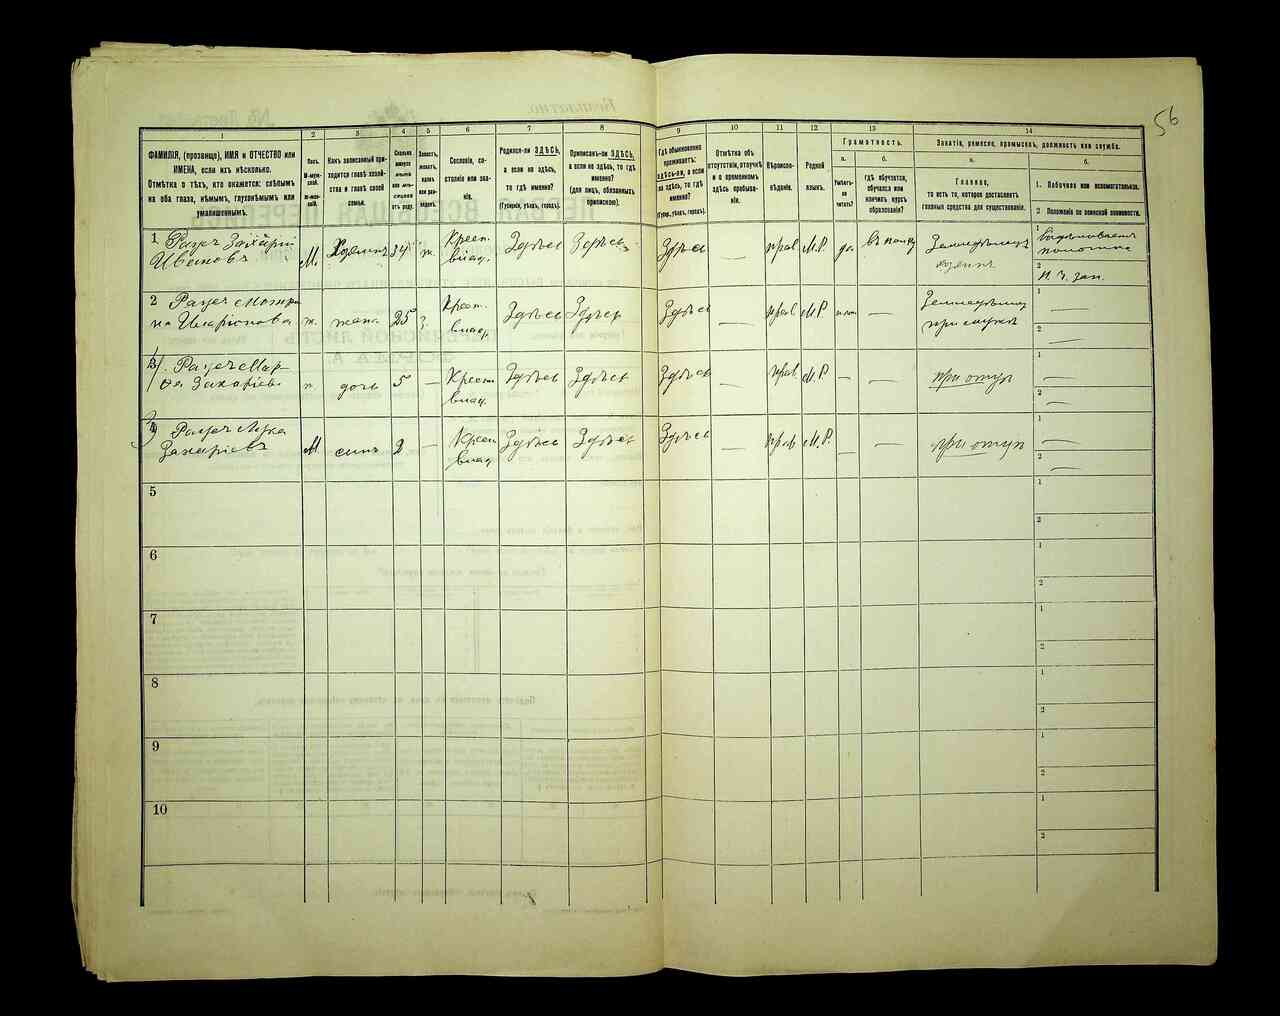 56
1
2
3
4
5
6
7
8
9
10
11
12
13
14
ФАМИЛІЯ, (прозвище), ИМЯ и ОТЧЕСТВО или
ИМЕНА, если ихъ нѣсколько.
Отмѣтка о тѣхъ, кто окажется: слѣпымъ
на оба глаза, нѣмымъ, глухонѣмымъ или
умалишеннымъ.
Полъ.
М-муж-
ской.
Ж-жен-
скій.
Какъ записанный при-
ходится главѣ хозяй-
ства и главѣ своей
семьи.
Сколько
минуло
лѣтъ
или мѣ-
сяцевъ
отъ роду.
Холостъ,
женатъ,
вдовъ
или раз-
веденъ.
Сословіе, со-
стояніе или зва-
ніе.
Родился-ли ЗДѢСЬ,
а если не здѣсь,
то гдѣ именно?
(Губернія, уѣздъ, городъ).
Приписанъ-ли ЗДѢСЬ,
а если не здѣсь, то гдѣ
именно?
(для лицъ, обязанныхъ
припискою).
Гдѣ обыкновенно
проживаетъ:
здѣсь-ли, а если
не здѣсь, то гдѣ
именно?
(Губер., уѣздъ, городъ).
Отмѣтка объ
отсутствіи, отлучкѣ
и о временномъ
здѣсь пребыва-
ніи.
Вѣроиспо-
вѣданіе.
Родной
языкъ.
Грамотность.
а.
Умѣетъ-
ли
читать?
б.
гдѣ обучается,
обучался или
кончилъ курсъ
образованія?
Занятіе, ремесло, промыселъ, должность или служба.
а.
Главное,
то есть то, которое доставляетъ
главныя средства для существованія.
б.
1. Побочное или вспомогательное.
2 Положеніе по воинской повинности.
1 Рацеч Захарій
Ивановъ М. Хозяинъ 34 ж. Крест. владѣ. Здѣсь Здѣсь Здѣсь — прав. М.Р. да.
хозяинъ
2 И. 3. зап.
2 Рацеч Мотро
на Иларіонова ж. жена. 25 З. Крест. владѣ. Здѣсь Здѣсь Здѣсь — прав М.Р. —
1
2 —
3 Рацеч Мар
фа Захаріева дочь 5 — Крест. владѣ. Здѣсь Здѣсь Здѣсь — прав М.Р. — — при отцѣ
1 —
2 —
4 Рацеч Лука
Захаріевъ М сынъ 2 — Крест. владѣ. Здѣсь Здѣсь Здѣсь — прав М.Р. — — при отцѣ
1 —
2 —
5
1
2
6
1
2
7
1
2
8
1
2
9
1
2
10
1
2